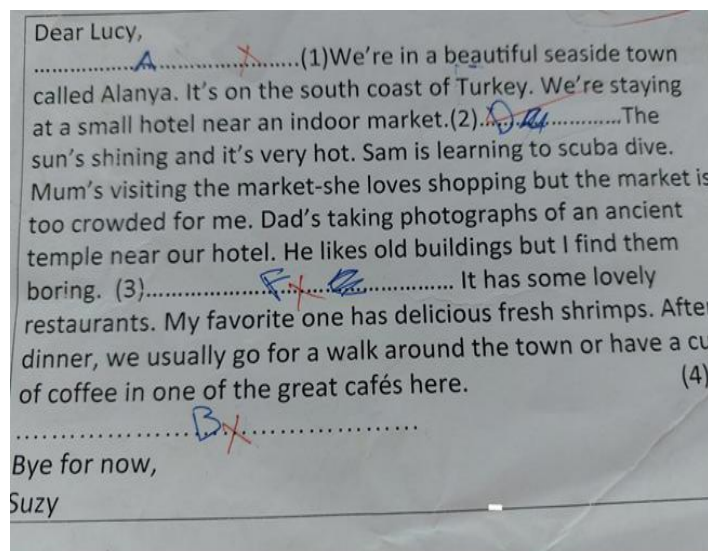 Dear Lucy,
..................A..................X..........(1)We're in a beautiful seaside town
called Alanya. It's on the south coast of Turkey. We're staying
at a small hotel near an indoor market.(2)......D..................The
sun's shining and it's very hot. Sam is learning to scuba dive.
Mum's visiting the market-she loves shopping but the market is
too crowded for me. Dad's taking photographs of an ancient
temple near our hotel. He likes old buildings but I find them
boring. (3)....................F......X.................... It has some lovely
restaurants. My favorite one has delicious fresh shrimps. After
dinner, we usually go for a walk around the town or have a cu
of coffee in one of the great cafés here. (4)
......................B...X..........................
Bye for now,
Suzy